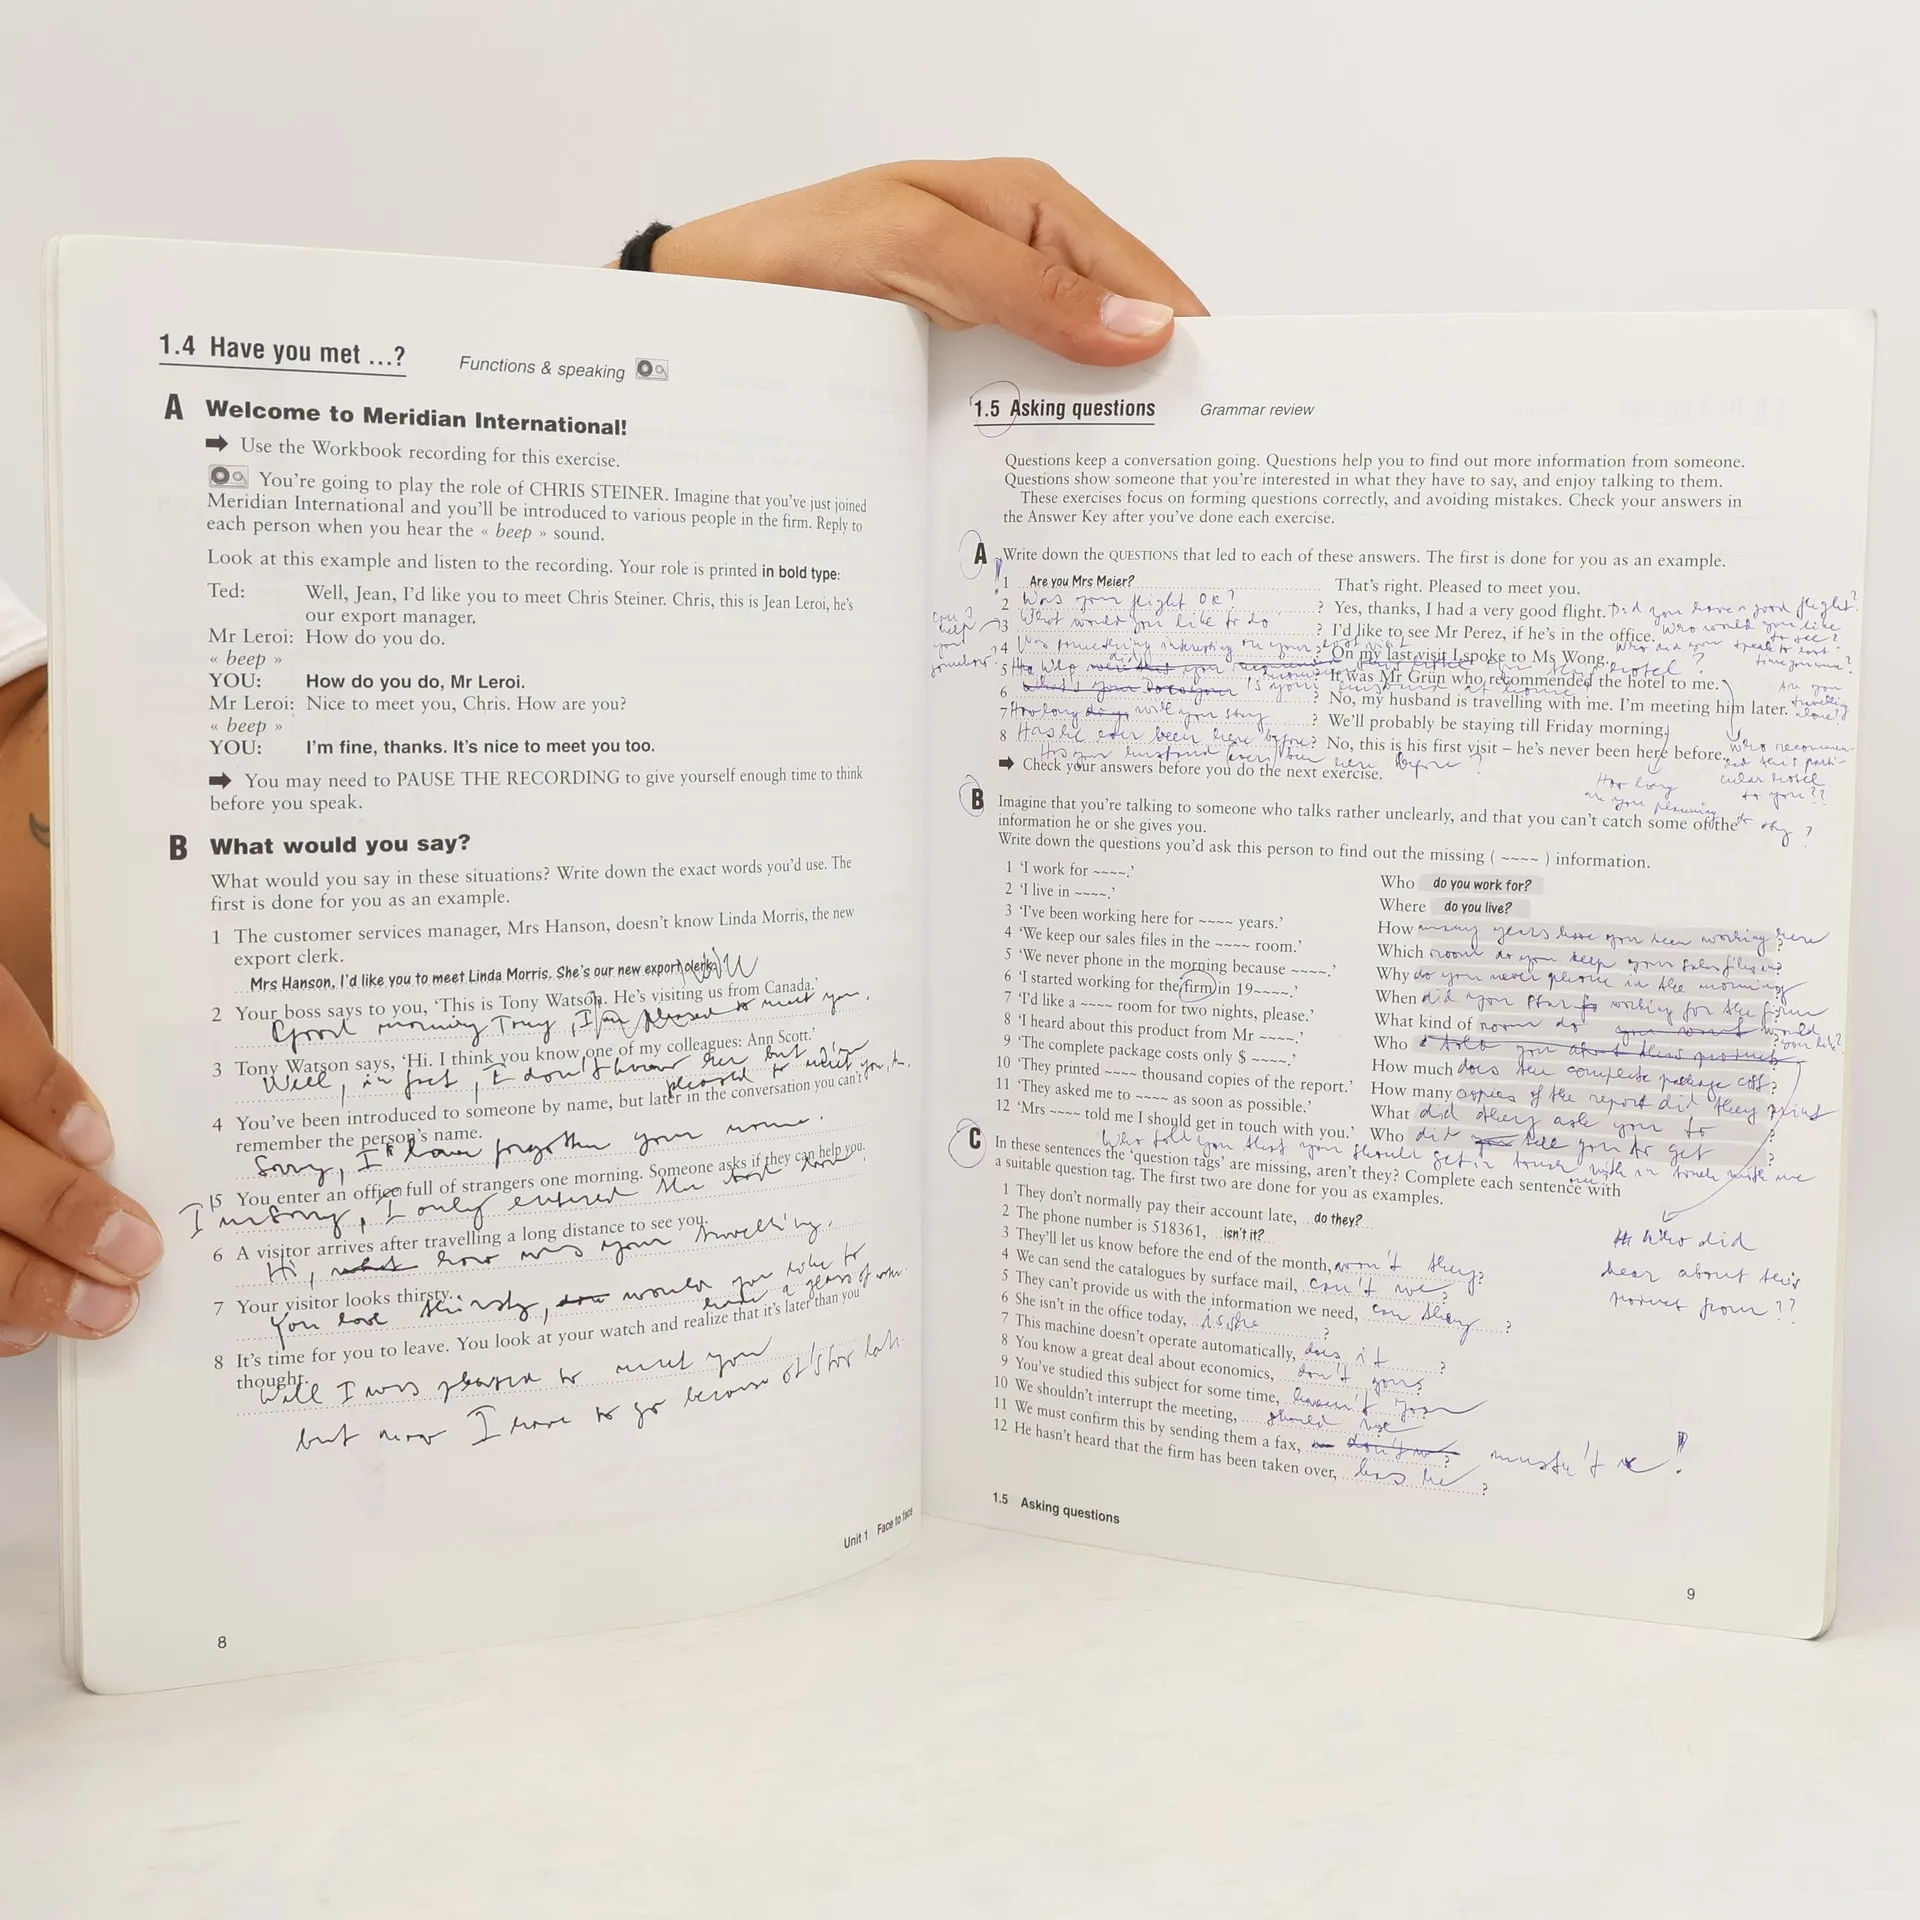 1.4 Have you met ...?
Functions & speaking
A Welcome to Meridian International!
➡ Use the Workbook recording for this exercise.
You're going to play the role of CHRIS STEINER. Imagine that you've just joined
Meridian International and you'll be introduced to various people in the firm. Reply to
each person when you hear the « beep » sound.
Look at this example and listen to the recording. Your role is printed in bold type:
Ted: Well, Jean, I'd like you to meet Chris Steiner. Chris, this is Jean Leroi, he's
our export manager.
Mr Leroi: How do you do.
« beep »
YOU: How do you do, Mr Leroi.
Mr Leroi: Nice to meet you, Chris. How are you?
« beep »
YOU: I'm fine, thanks. It's nice to meet you too.
➡ You may need to PAUSE THE RECORDING to give yourself enough time to think
before you speak.
B What would you say?
What would you say in these situations? Write down the exact words you'd use. The
first is done for you as an example.
1 The customer services manager, Mrs Hanson, doesn't know Linda Morris, the new
export clerk.
Mrs Hanson, I'd like you to meet Linda Morris. She's our new export clerk.
2 Your boss says to you, 'This is Tony Watson. He's visiting us from Canada.'
Good morning Tony, I am pleased to meet you.
3 Tony Watson says, 'Hi. I think you know one of my colleagues: Ann Scott.'
Well, in fact, I don't know her but I'm
pleased to meet you,
4 You've been introduced to someone by name, but later in the conversation you can't
remember the person's name.
Sorry, I have forgotten your name.
5 You enter an office full of strangers one morning. Someone asks if they can help you.
I'm sorry, I only entered the
6 A visitor arrives after travelling a long distance to see you.
Hi, what how was your travelling.
7 Your visitor looks thirsty.
You look thirsty, would you like to
have a glass of
8 It's time for you to leave. You look at your watch and realize that it's later than you
thought.
Well I was pleased to meet you
but now I have to go because it's too late
Unit 1 Face to face
8
1.5 Asking questions
Grammar review
Questions keep a conversation going. Questions help you to find out more information from someone.
Questions show someone that you're interested in what they have to say, and enjoy talking to them.
These exercises focus on forming questions correctly, and avoiding mistakes. Check your answers in
the Answer Key after you've done each exercise.
A Write down the QUESTIONS that led to each of these answers. The first is done for you as an example.
1 Are you Mrs Meier? That's right. Pleased to meet you.
2 Was your flight OK? ? Yes, thanks, I had a very good flight. Did you have a good flight?
3 What would you like to do ? I'd like to see Mr Perez, if he's in the office. Who would you like
to see?
can I
help
you
somehow?
4 Was something interesting on your last visit ? On my last visit I spoke to Ms Wong.
Who did you speak to last
time you came?
5 Who did you this hotel? It was Mr Grün who recommended the hotel to me.
6 Is your husband at home ? No, my husband is travelling with me. I'm meeting him later.
Are you
travelling
alone?
7 How long will you stay ? We'll probably be staying till Friday morning.
8 Has he ever been here before? No, this is his first visit – he's never been here before.
Has your husband ever been here before?
Who recommen-
ded this parti-
cular hotel
to you??
➡ Check your answers before you do the next exercise.
How long
are you planning to stay?
B Imagine that you're talking to someone who talks rather unclearly, and that you can't catch some of the
information he or she gives you.
Write down the questions you'd ask this person to find out the missing ( ~~~~ ) information.
1 'I work for ~~~~.' Who do you work for?
2 'I live in ~~~~.' Where do you live?
3 'I've been working here for ~~~~ years.' How many years have you been working here ?
4 'We keep our sales files in the ~~~~ room.' Which room do you keep your sales files in?
5 'We never phone in the morning because ~~~~.' Why do you never phone in the morning
6 'I started working for the firm in 19~~~~.' When did you start working for the firm
7 'I'd like a ~~~~ room for two nights, please.' What kind of room do you want would
you like?
8 'I heard about this product from Mr ~~~~.' Who told you about this product
9 'The complete package costs only $ ~~~~.' How much does the complete package cost?
10 'They printed ~~~~ thousand copies of the report.' How many copies of the report did they print
11 'They asked me to ~~~~ as soon as possible.' What did they ask you to ?
12 'Mrs ~~~~ told me I should get in touch with you.' Who did you tell you to get ?
in touch with me
Who told you that you should get in touch with
me?
C In these sentences the 'question tags' are missing, aren't they? Complete each sentence with
a suitable question tag. The first two are done for you as examples.
1 They don't normally pay their account late, do they?
2 The phone number is 518361, isn't it?
3 They'll let us know before the end of the month, won't they?
4 We can send the catalogues by surface mail, can't we?
5 They can't provide us with the information we need, can they ?
6 She isn't in the office today, is she ?
7 This machine doesn't operate automatically, does it ?
8 You know a great deal about economics, don't you?
9 You've studied this subject for some time, haven't you
10 We shouldn't interrupt the meeting, should we
11 We must confirm this by sending them a fax, don't we ? mustn't we!
12 He hasn't heard that the firm has been taken over, has he ?
Who did
hear about this
product from??
1.5 Asking questions
9